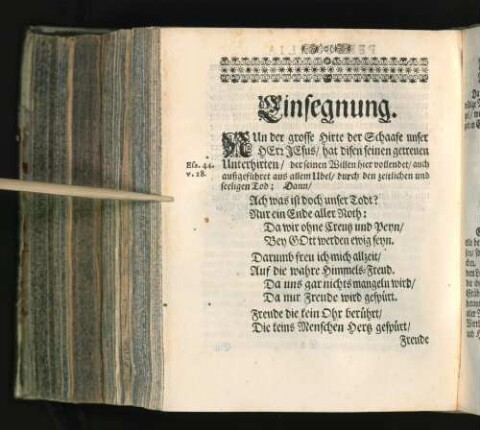 Einsegnung.
NUn der grosse Hirte der Schaafe unser
HErr JEsus/ hat disen seinen getreuen
Unterhirten/ der seinen Willen hier vollendet/ auch
Esa. 44.
v. 28.
außgeführet aus allem Ubel/ durch den zeitlichen und
seeligen Tod; Dann/
Ach was ist doch unser Todt?
Nur ein Ende aller Noth:
Da wir ohne Creutz und Peyn/
Bey GOtt werden ewig seyn.
Darumb freu ich mich allzeit/
Auf die wahre Himmels-Freud.
Da uns gar nichts mangeln wird/
Da nur Freude wird gespürt.
Freude die kein Ohr berührt/
Die keins Menschen Hertz gespürt/
Freude